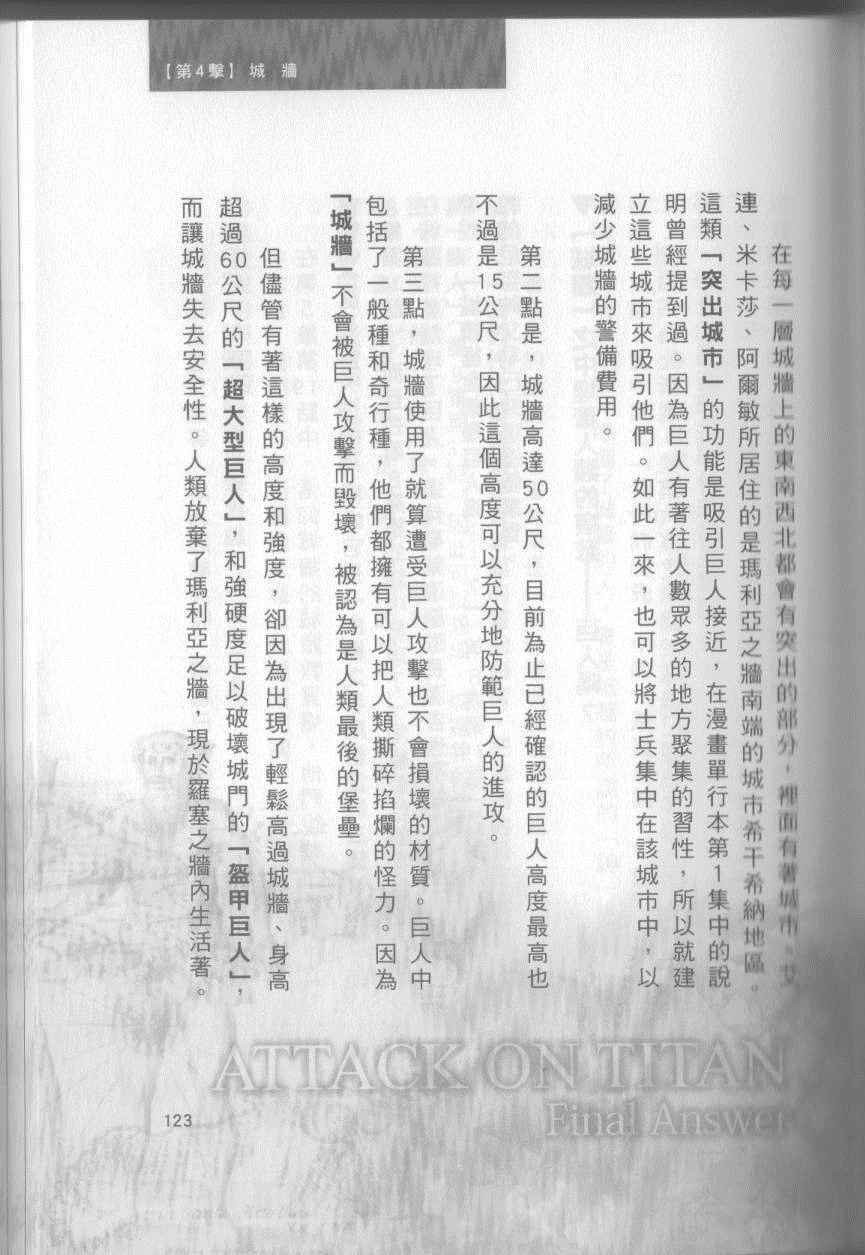 【第4擊】 城 牆
在每一層城牆上的東南西北都會有突出的部分，裡面有著城市。艾
連、米卡莎、阿爾敏所居住的是瑪利亞之牆南端的城市希干希納地區。
這類「突出城市」的功能是吸引巨人接近，在漫畫單行本第1集中的說
明曾經提到過。因為巨人有著往人數眾多的地方聚集的習性，所以就建
立這些城市來吸引他們。如此一來，也可以將士兵集中在該城市中，以
減少城牆的警備費用。
第二點是，城牆高達50公尺，目前為止已經確認的巨人高度最高也
不過是15公尺，因此這個高度可以充分地防範巨人的進攻。
第三點，城牆使用了就算遭受巨人攻擊也不會損壞的材質。巨人中
包括了一般種和奇行種，他們都擁有可以把人類撕碎掐爛的怪力。因為
「城牆」不會被巨人攻擊而毀壞，被認為是人類最後的堡壘。
但儘管有著這樣的高度和強度，卻因為出現了輕鬆高過城牆、身高
超過60公尺的「超大型巨人」，和強硬度足以破壞城門的「盔甲巨人」，
而讓城牆失去安全性。人類放棄了瑪利亞之牆，現於羅塞之牆內生活著。
ATTACK ON TITAN
Final Answer
123